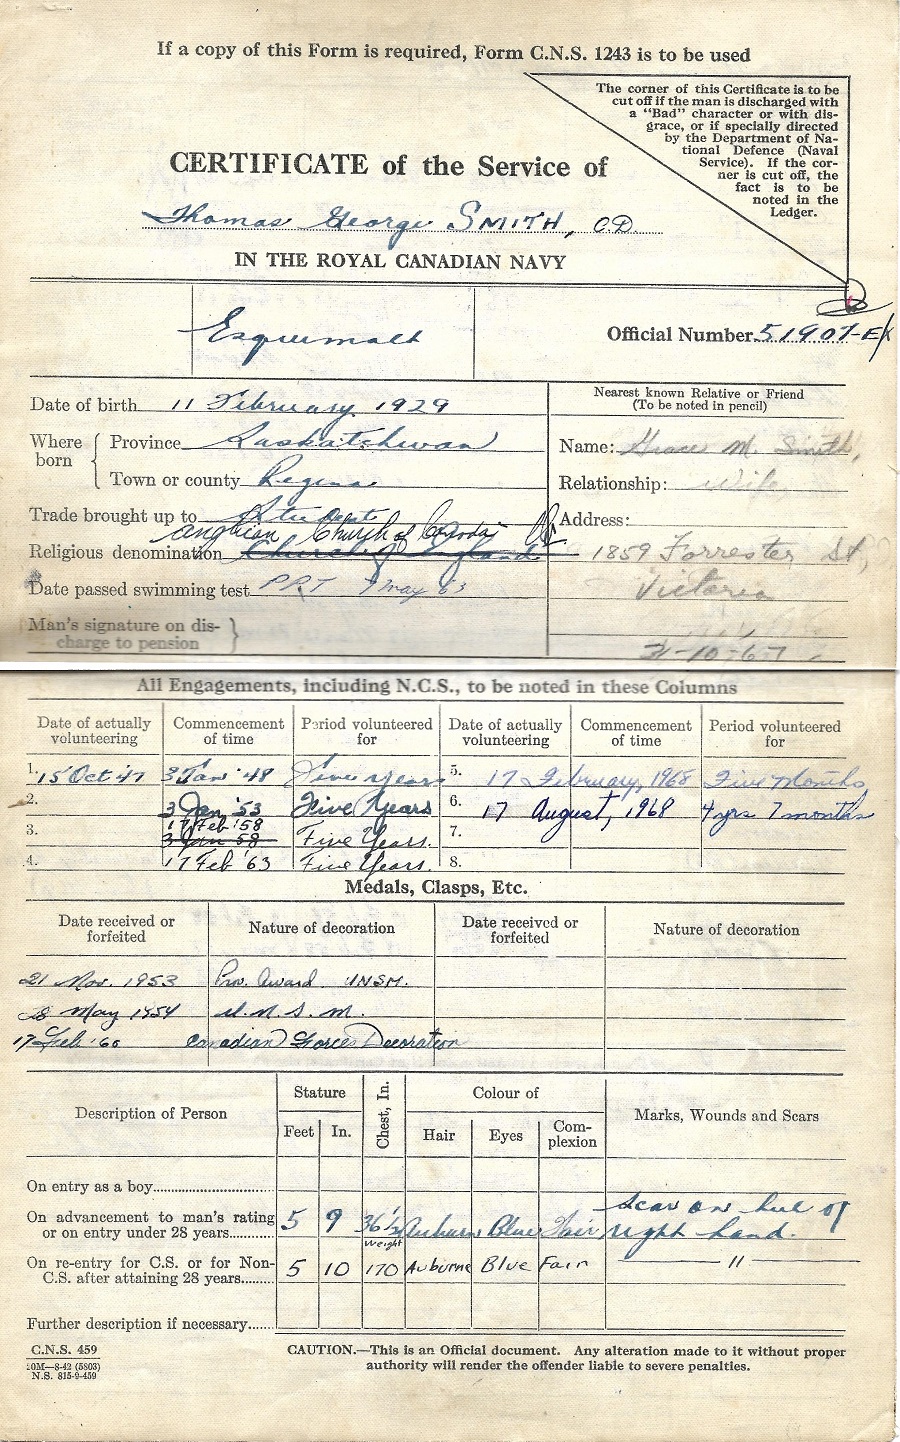 If a copy of this Form is required, Form C.N.S. 1243 is to be used
The corner of this Certificate is to be
cut off if the man is discharged with
a "Bad" character or with dis-
grace, or if specially directed
by the Department of Na-
tional Defence (Naval
Service). If the cor-
ner is cut off, the
fact is to be
noted in the
Ledger.
CERTIFICATE of the Service of
Thomas George SMITH, C.D.
IN THE ROYAL CANADIAN NAVY
Esquimalt
Official Number 51907-E
Date of birth 11 February 1929
Where born
Province Saskatchewan
Town or county Regina
Trade brought up to Student
Anglican Church of Canada
Religious denomination Church of England
Date passed swimming test PRT 7 May 63
Man's signature on dis-
charge to pension
Nearest known Relative or Friend
(To be noted in pencil)
Name: Grace M. Smith,
Relationship: Wife
Address:
1859 Forrester St,
Victoria
31-10-67
All Engagements, including N.C.S., to be noted in these Columns
Date of actually volunteering Commencement of time Period volunteered for Date of actually volunteering Commencement of time Period volunteered for
1. 15 Oct '47 3 Jan '48 Five years 5. 17 February, 1968 Five Months
2. 3 Jan '53 Five Years 6. 17 August, 1968 4 yrs 7 months
17 Feb '58
3. 3 Jan '58 Five Years. 7.
4. 17 Feb '63 Five Years. 8.
Medals, Clasps, Etc.
Date received or forfeited Nature of decoration Date received or forfeited Nature of decoration
21 Nov. 1953 Prov. Award UNSM.
28 May 1954 U.N.S.M.
17 Feb '60 Canadian Forces Decoration
Description of Person Stature Feet In. Chest, In. Colour of Hair Eyes Com-plexion Marks, Wounds and Scars
On entry as a boy
On advancement to man's rating
or on entry under 28 years 5 9 36½ Auburn Blue Fair Scar on heel of
right hand.
weight
On re-entry for C.S. or for Non-
C.S. after attaining 28 years 5 10 170 Auburne Blue Fair "
Further description if necessary
C.N.S. 459
10M—8-42 (5803)
N.S. 815-9-459
CAUTION.—This is an Official document. Any alteration made to it without proper
authority will render the offender liable to severe penalties.